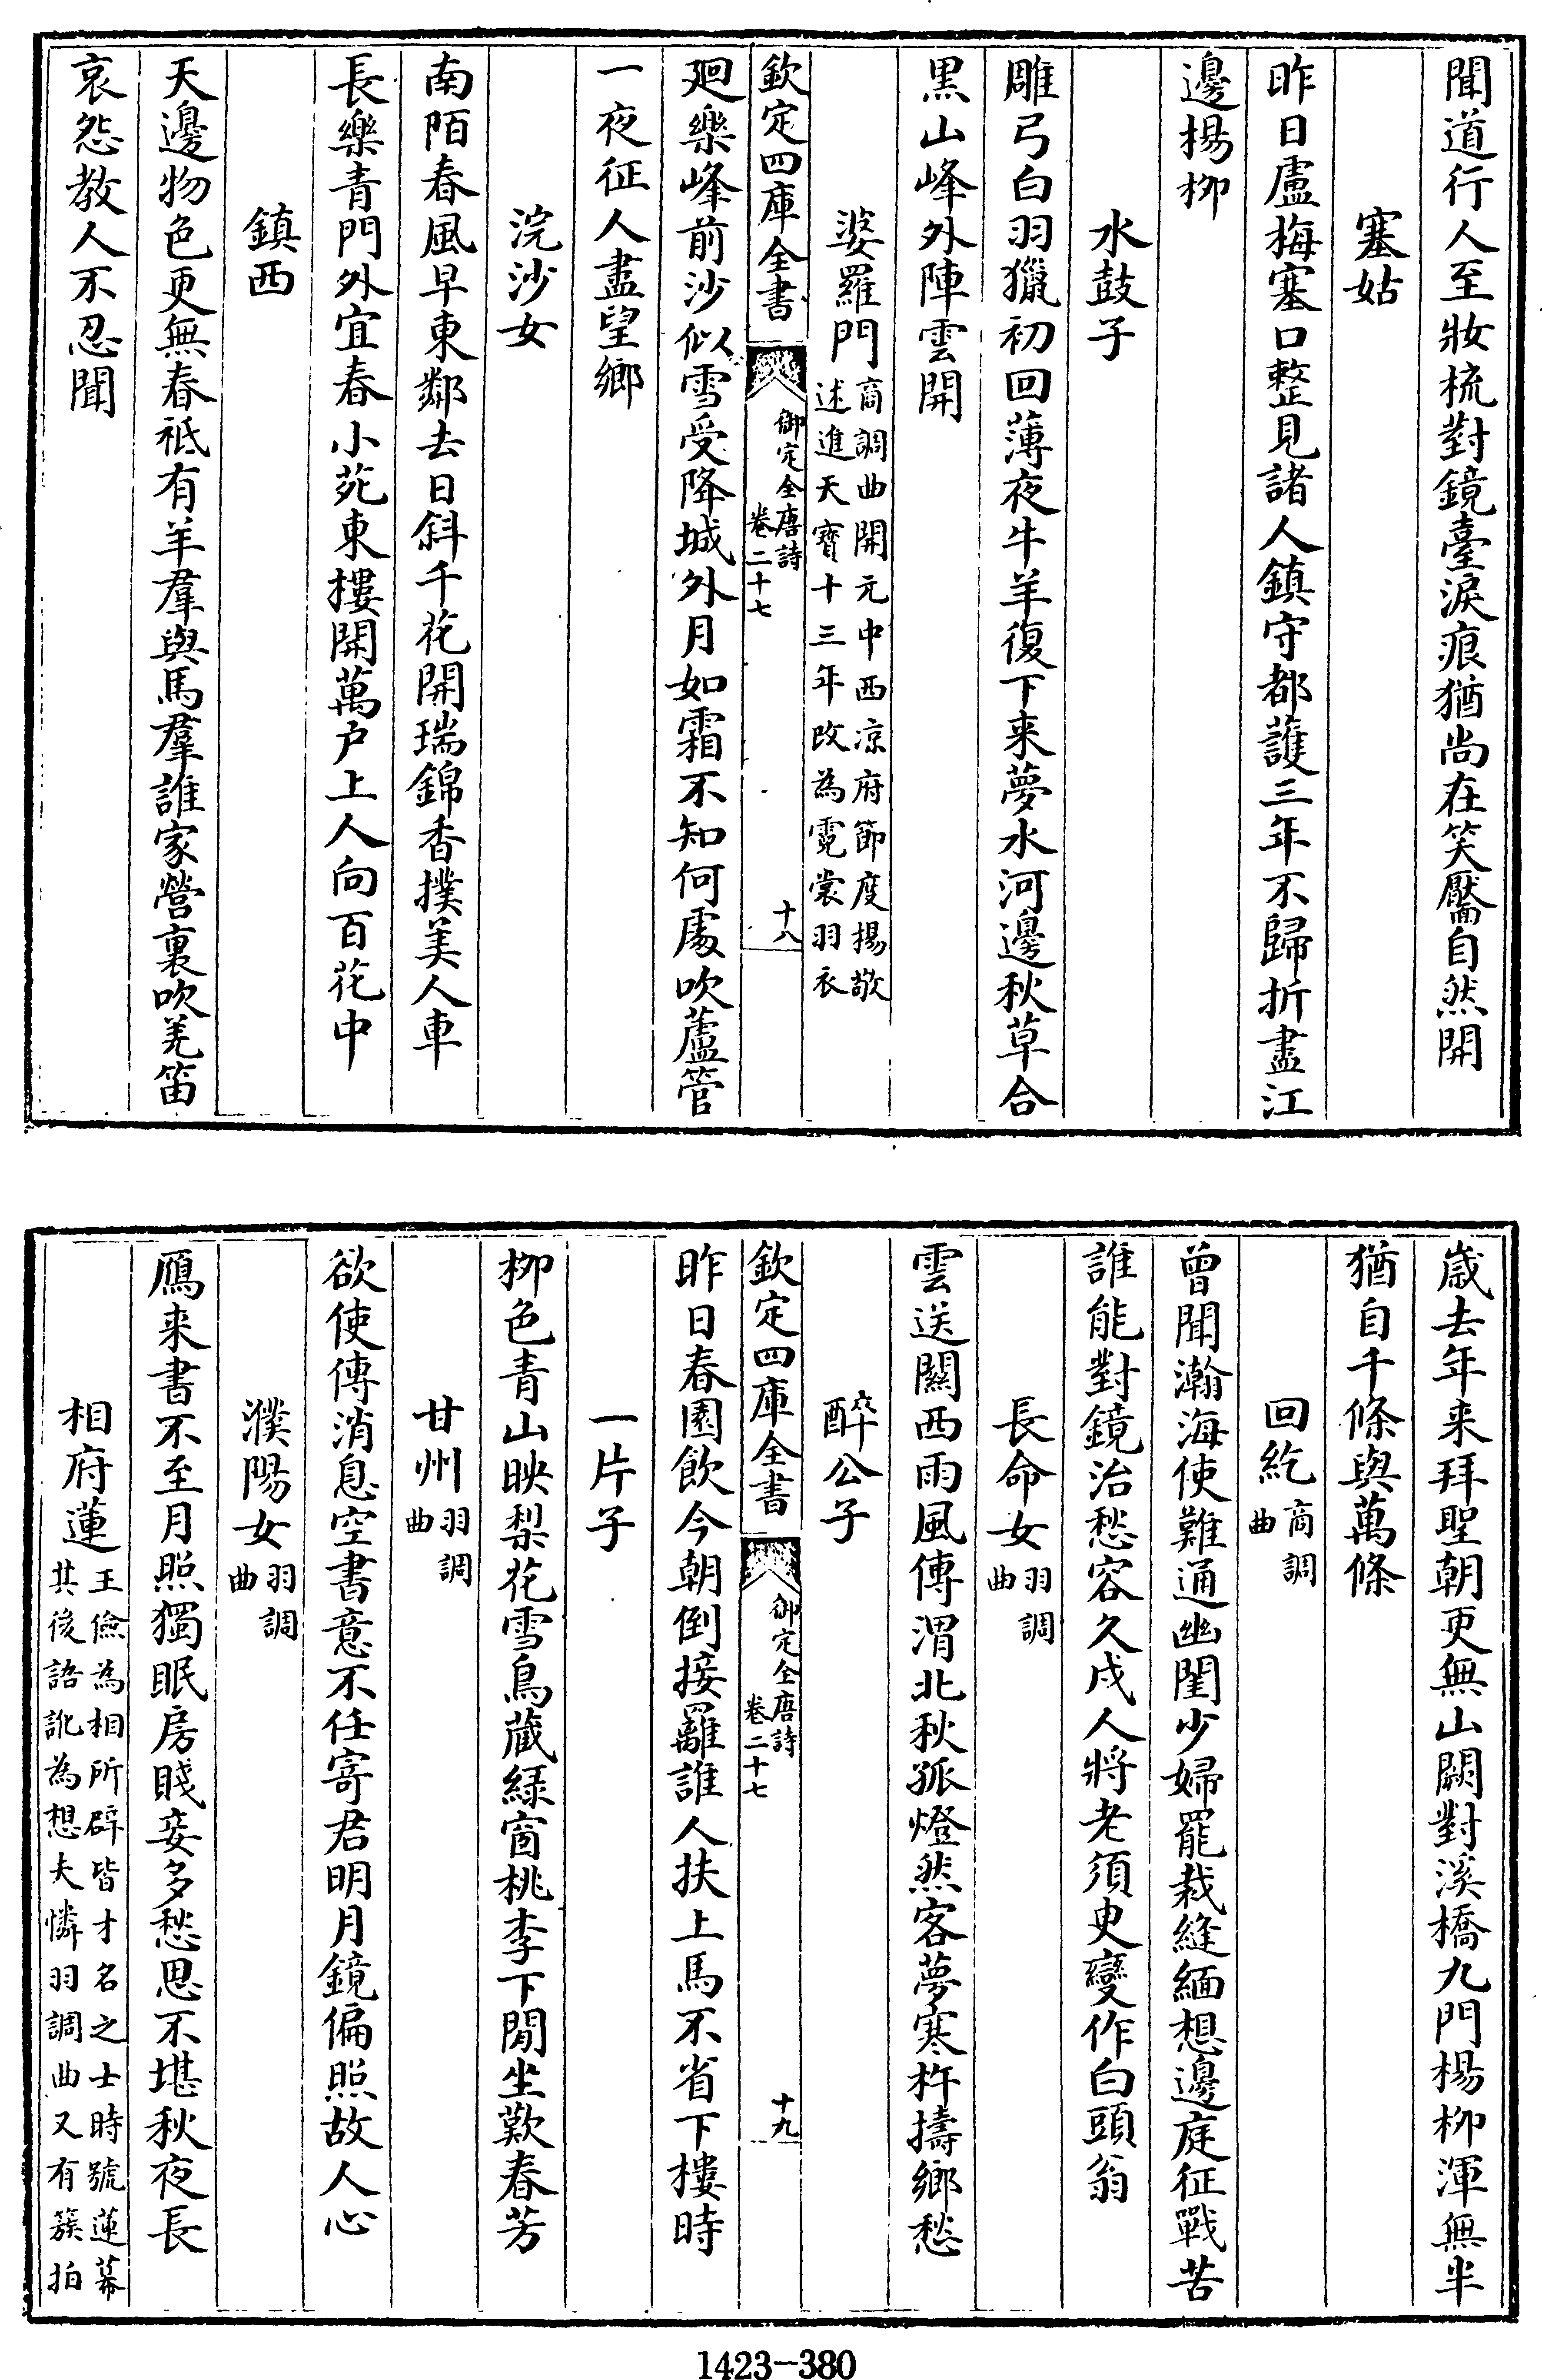 聞道行人至妝梳對鏡臺淚痕猶尚在笑靨自然開
塞姑
昨日盧梅塞口整見諸人鎮守都護三年不歸折盡江
邊楊柳
水鼓子
雕弓白羽獵初回薄夜牛羊復下来夢水河邊秋草合
黒山峰外陣雲開
婆羅門商調曲開元中西涼府節度揚敬
述進天寶十三年改為霓裳羽衣
欽定四庫全書
御定全唐詩
卷二十七
十八
廻樂峰前沙似雪受降城外月如霜不知何處吹蘆管
一夜征人盡望鄉
浣沙女
南陌春風早東鄰去日斜千花開瑞錦香撲美人車
長樂青門外宜春小苑東樓開萬户上人向百花中
鎮西
天邊物色更無春祗有羊羣與馬羣誰家營裏吹羌笛
哀怨教人不忍聞
歲去年来拜聖朝更無山闕對溪橋九門楊柳渾無半
猶自千條與萬條
回紇商調
曲
曾聞瀚海使難通幽閨少婦罷裁縫緬想邊庭征戰苦
誰能對鏡治愁容久戍人將老須臾變作白頭翁
長命女羽調
曲
雲送關西雨風傳渭北秋孤燈然客夢寒杵擣鄉愁
醉公子
欽定四庫全書
御定全唐詩
卷二十七
十九
昨日春園飲今朝倒接䍦誰人扶上馬不省下樓時
一片子
柳色青山映梨花雪鳥藏緑窗桃李下閒坐歎春芳
甘州羽調
曲
欲使傳消息空書意不任寄君明月鏡偏照故人心
濮陽女羽調
曲
鴈来書不至月照獨眠房賤妾多愁思不堪秋夜長
相府蓮王儉為相所辟皆才名之士時號蓮幕
其後語訛為想夫憐羽調曲又有簇拍
1423-380